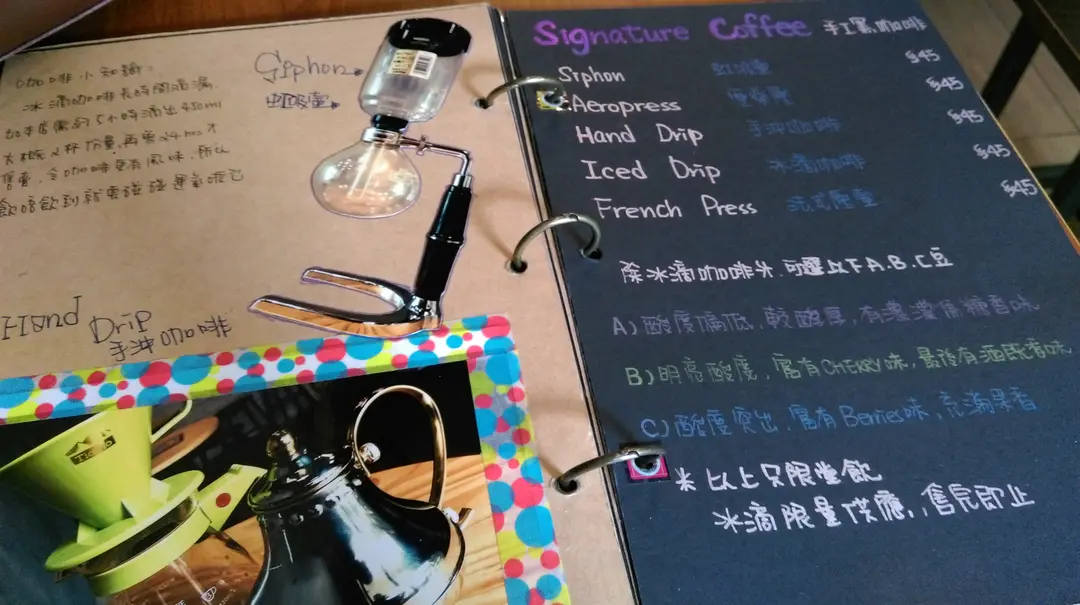 咖啡小知識:
冰滴咖啡長時間滴漏,
如本店需約5小時滴出450ml
大概2杯份量,再要24hrs才
售賣,令咖啡更有風味,所以
飲唔飲到就要碰碰運氣呢它
Siphon
虹吸壺
Hand Drip
手沖咖啡
Signature Coffee 手工黑咖啡
Siphon 虹吸壺 $45
Aeropress 壓 $45
Hand Drip 手沖咖啡 $45
Iced Drip 冰滴咖啡 $45
French Press 法式壓壺 $45
除冰滴咖啡外,可選以下A.B.C豆
A) 酸度偏低,較醇厚,有濃濃焦糖香味
B) 明亮酸度,富有CHERRY味,最後有酒香味
C) 酸度突出,富有Berries味,充滿果香
* 以上只限堂飲
冰滴限量供應,售完即止